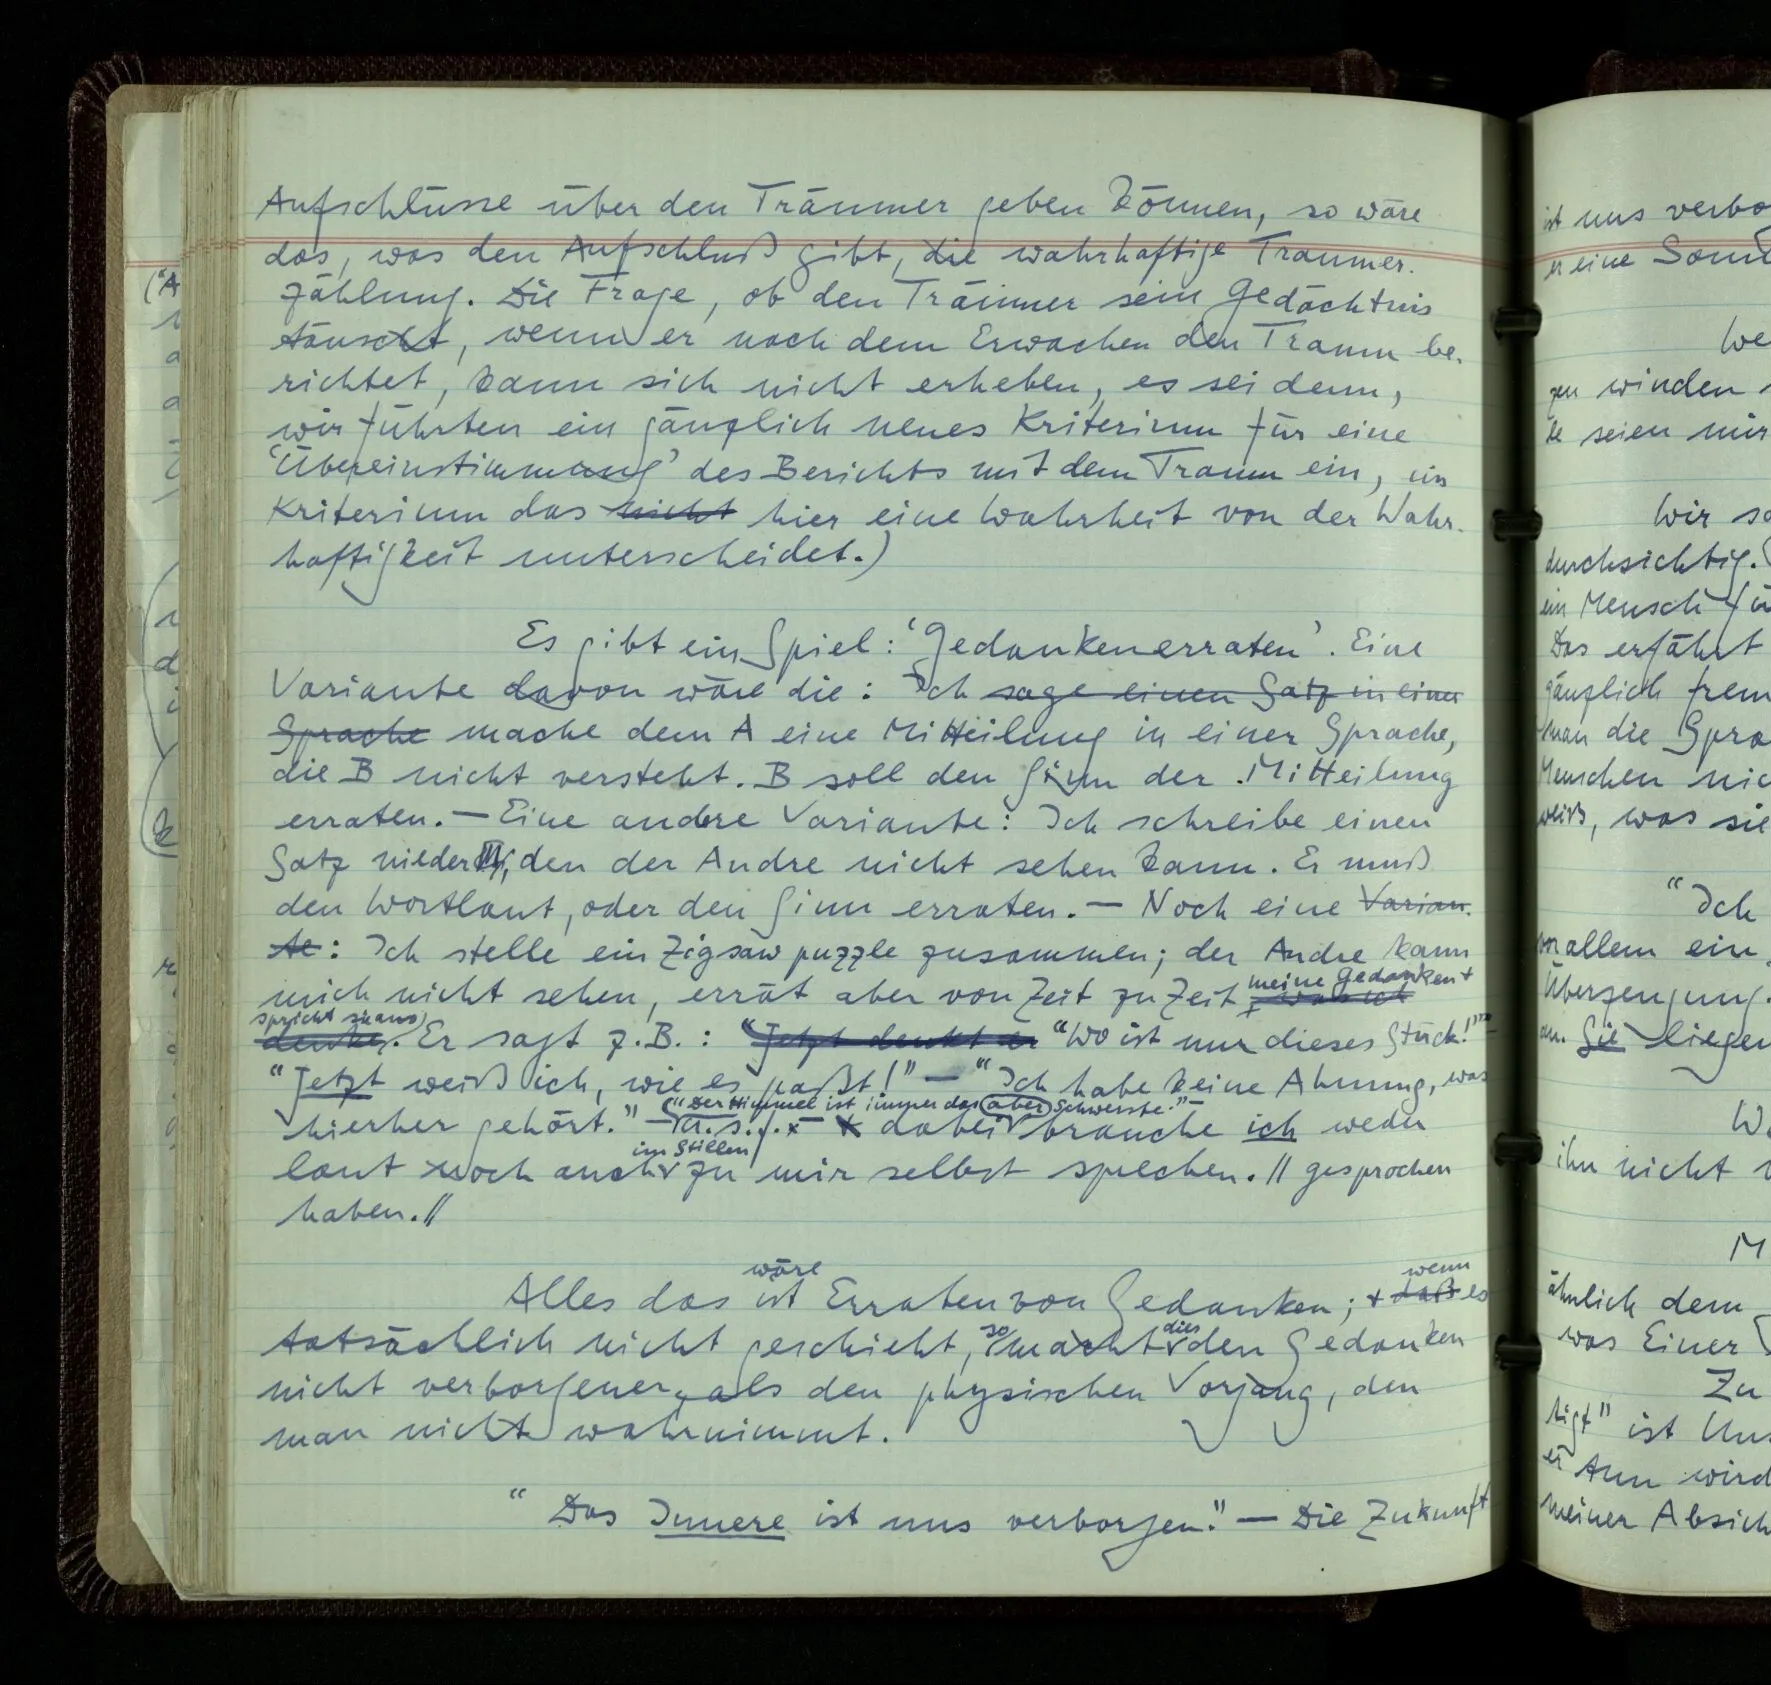 Aufschlüsse über den Träumer geben können, so wäre
das, was den Aufschluß gibt, die wahrhaftige Traumer-
zählung. Die Frage, ob den Träumer sein Gedächtnis
täuscht, wenn er nach dem Erwachen den Traum be-
richtet, kann sich nicht erheben, es sei denn,
wir führten ein gänzlich neues Kriterium für eine
‘Übereinstimmung’ des Berichts mit dem Traum ein, ein
Kriterium das nicht hier eine Wahrheit von der Wahr-
haftigkeit unterscheidet.)
Es gibt ein Spiel: ‘Gedankenerraten’. Eine
Variante davon wäre die: Ich sage einen Satz in einer
Sprache mache dem A eine Mitteilung in einer Sprache,
die B nicht versteht. B soll den Sinn der Mitteilung
erraten. — Eine andre Variante: Ich schreibe einen
Satz nieder, den der Andre nicht sehen kann. Er muß
den Wortlaut, oder den Sinn erraten. — Noch eine Varian-
te: Ich stelle ein Zigsaw puzzle zusammen; der Andre kann
meine Gedanken +
mich nicht sehen, errät aber von Zeit zu Zeit, was ich
spricht sie aus
denke. Er sagt z.B.: “Jetzt denkt er “Wo ist nur dieses Stück!”” —
“Jetzt weiß ich, wie es paßt!” — “Ich habe keine Ahnung, was
“Der Himmel ist immer das aber Schwerste.” —
hierher gehört.” — u.s.f. — dabei brauche ich weder
im Stillen
laut noch auch zu mir selbst sprechen. // gesprochen
haben. //
wäre wenn
Alles das ist Erraten von Gedanken; + daß es
so dies
tatsächlich nicht geschieht, macht den Gedanken
nicht verborgener, als den physischen Vorgang, den
man nicht wahrnimmt.
“Das Innere ist uns verborgen.” — Die Zukunft
("A
ist uns verbo
er eine
We
gen winden
te seien mir
Wir sa
durchsichtig.
ein Mensch fü
Das erfährt
gänzlich frem
man die Spra
Menschen nic
weiß, was sie
“Ich
vor allem ein
Überzeugung.
an. Sie liegen
ihn nicht
M
ähnlich dem
was Einer
Zu
tigt” ist Uns
er tun wird
meiner Absich